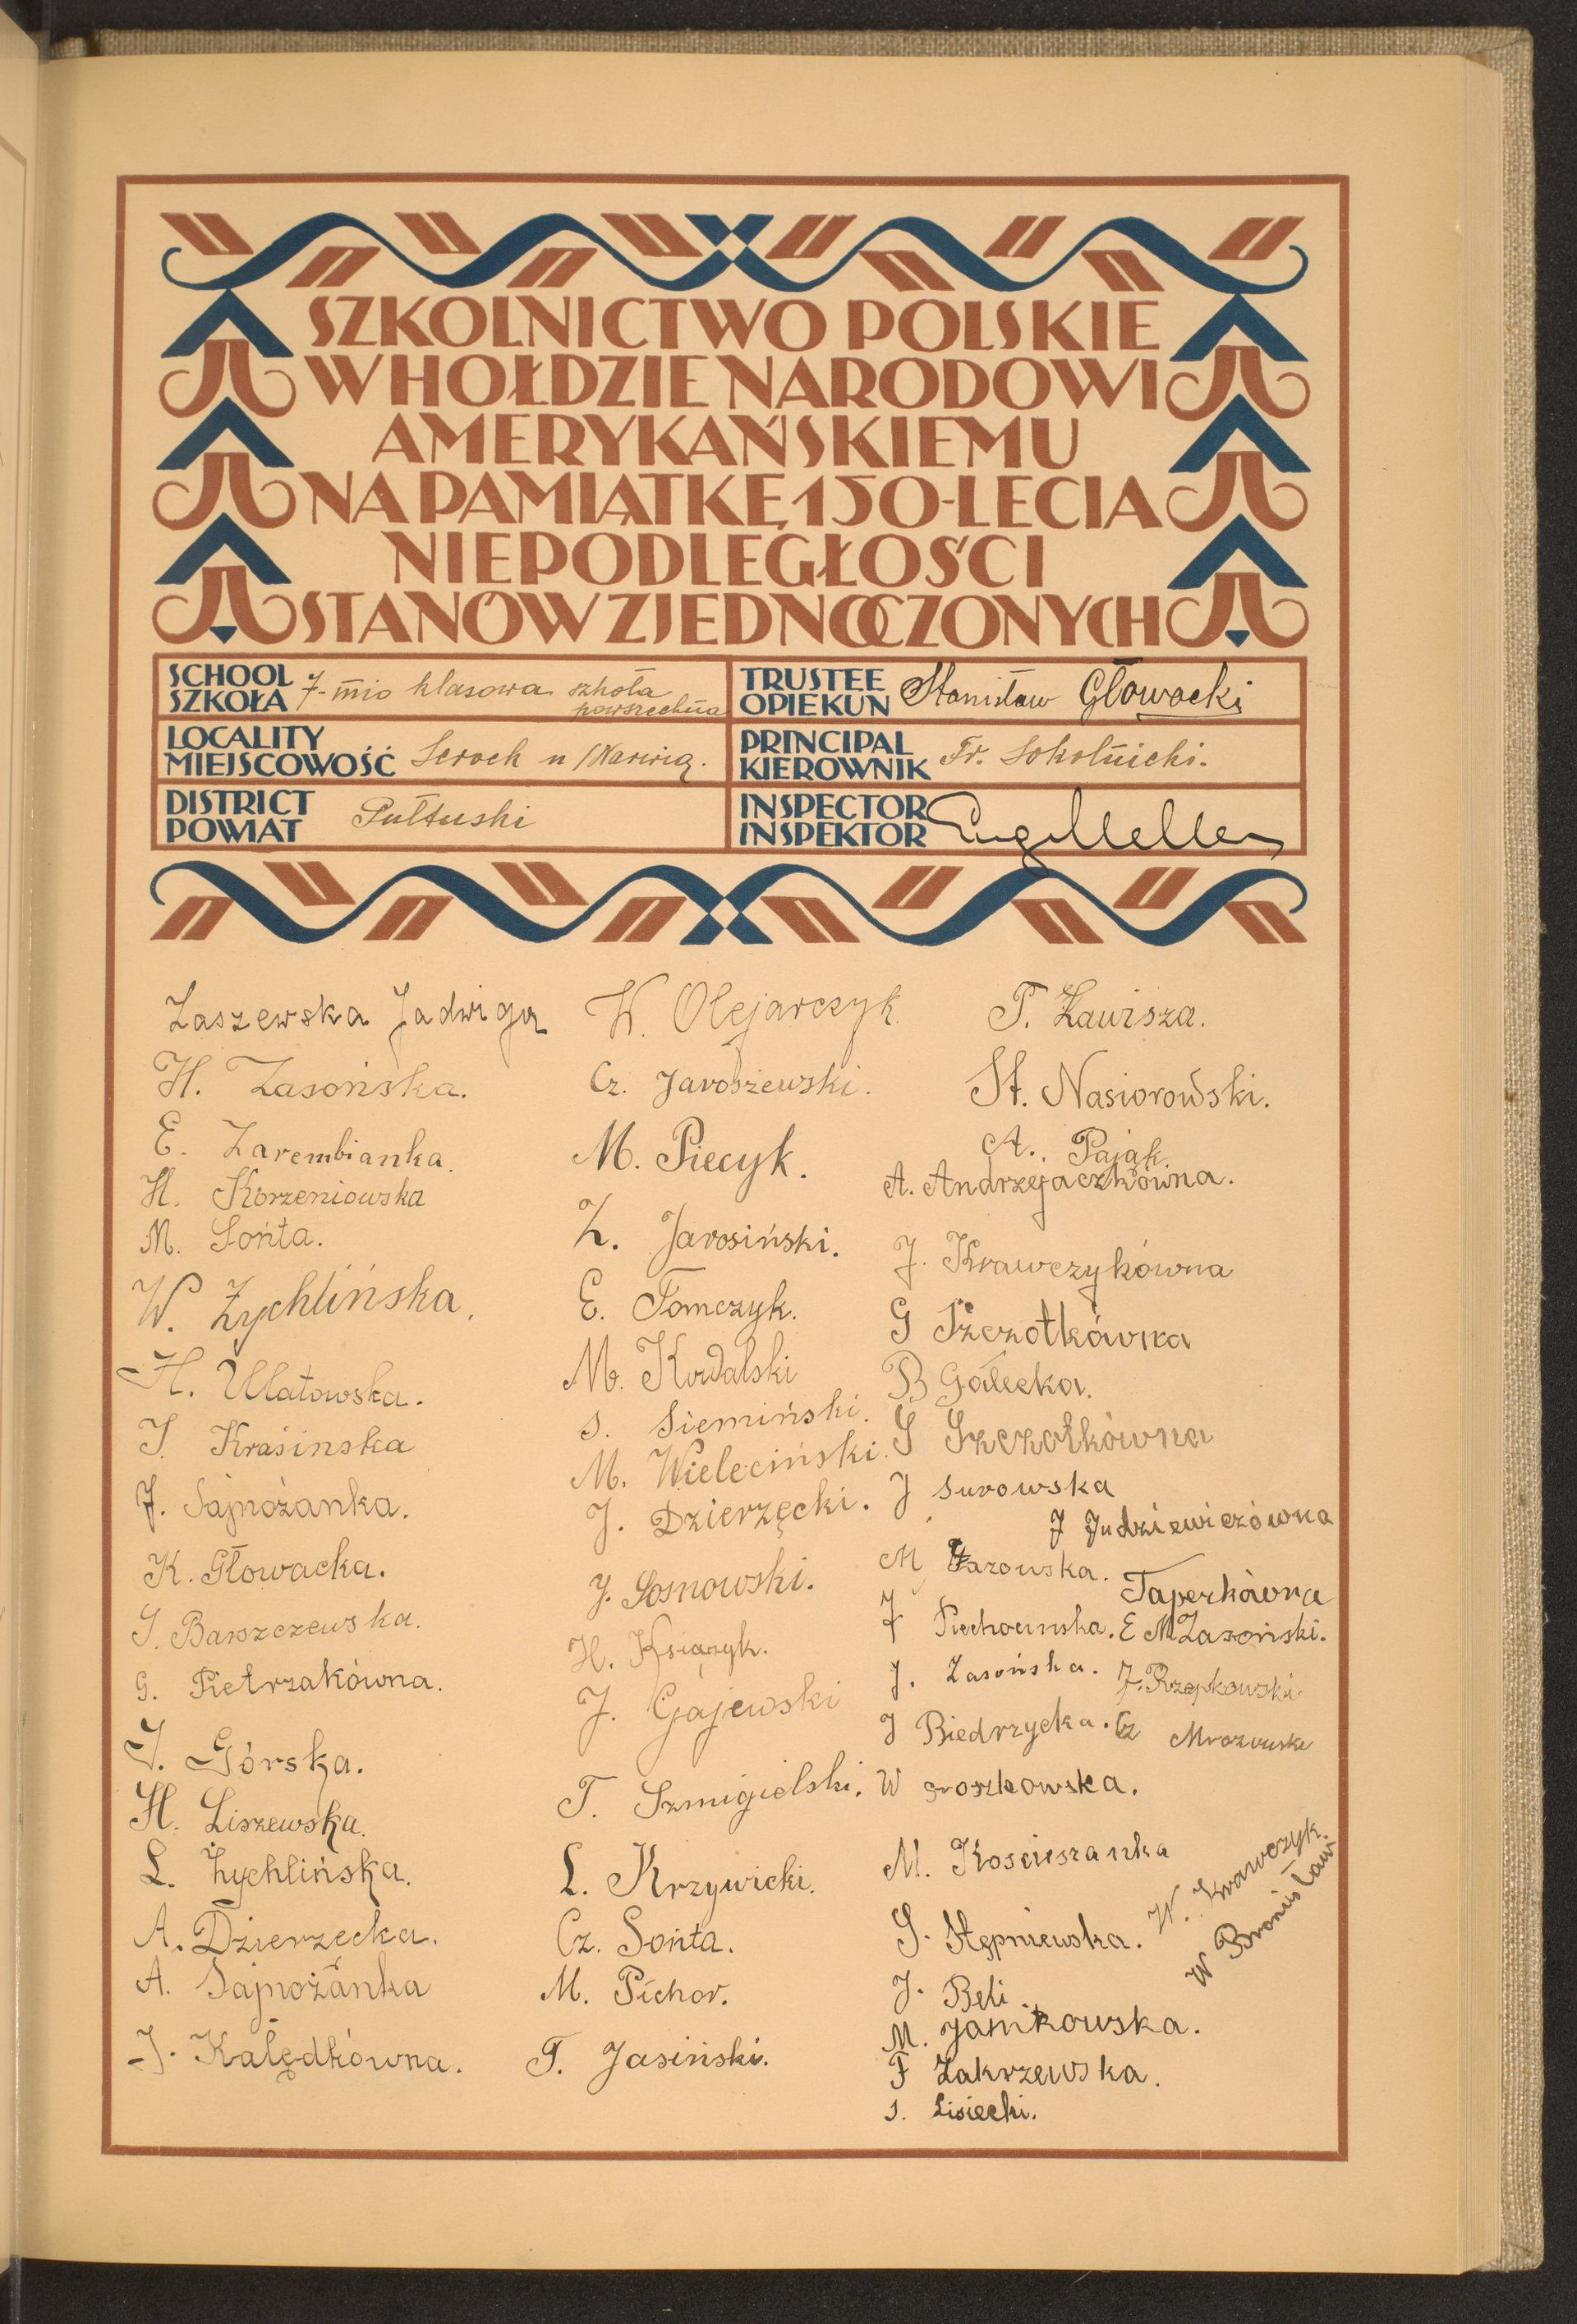 SZKOLNICTWO POLSKIE
W HOŁDZIE NARODOWI
AMERYKAŃSKIEMU
NA PAMIĄTKĘ 150-LECIA
NIEPODLEGŁOŚCI
STANÓW ZJEDNOCZONYCH
SCHOOL
SZKOŁA
7-mio klasowa szkoła
powszechna
TRUSTEE
OPIEKUN
Stanisław Głowacki
LOCALITY
MIEJSCOWOŚĆ
Serock n/Narwią.
PRINCIPAL
KIEROWNIK
Fr. Sokolnicki.
DISTRICT
POWIAT
Pułtuski
INSPECTOR
INSPEKTOR
Zaszewska Jadwiga
H. Zasońska.
E. Zarembianka.
H. Korzeniowska
M. Sońta.
W. Żychlińska.
H. Ulatowska.
J. Kraśinska
J. Sajnożanka.
K. Głowacka.
S. Barszczewska.
G. Pietrzakówna.
J. Górska.
H. Liszewska.
L. Żychlińska.
A. Dzierzecka.
A. Sajnożanka
J. Kalędkówna.
W. Olejarczyk
Cz. Jaroszewski.
M. Piecyk.
Z. Jarosiński.
E. Tomczyk.
M. Kowalski
S. Siemiński.
M. Wieleciński.
J. Dzierzęcki.
J. Sosnowski.
H. Książyk.
J. Gajewski
T. Szmigielski.
L. Krzywicki.
Cz. Sońta.
M. Pichor.
T. Jasiński.
T. Zawisza.
St. Nasiorowski.
A. Pająk
A. Andrzejaczkówna.
J. Krawczykówna
G Szczotkówna
B Gałecka.
S Szczotkówna
J Surowska
J Judziewiczówna
M
Taperkówna
J
E M Zasoński.
J. Zasońska.
J. Rzepkowski
J Biedrzycka.
Cz Mrozowski
W Groszkowska.
M. Kosciuszanka
W. Krawczyk.
W Bronisław
S. Stępniewska.
J. Beli
M. Janikowska.
F Zakrzewska.
S. Lisiecki.